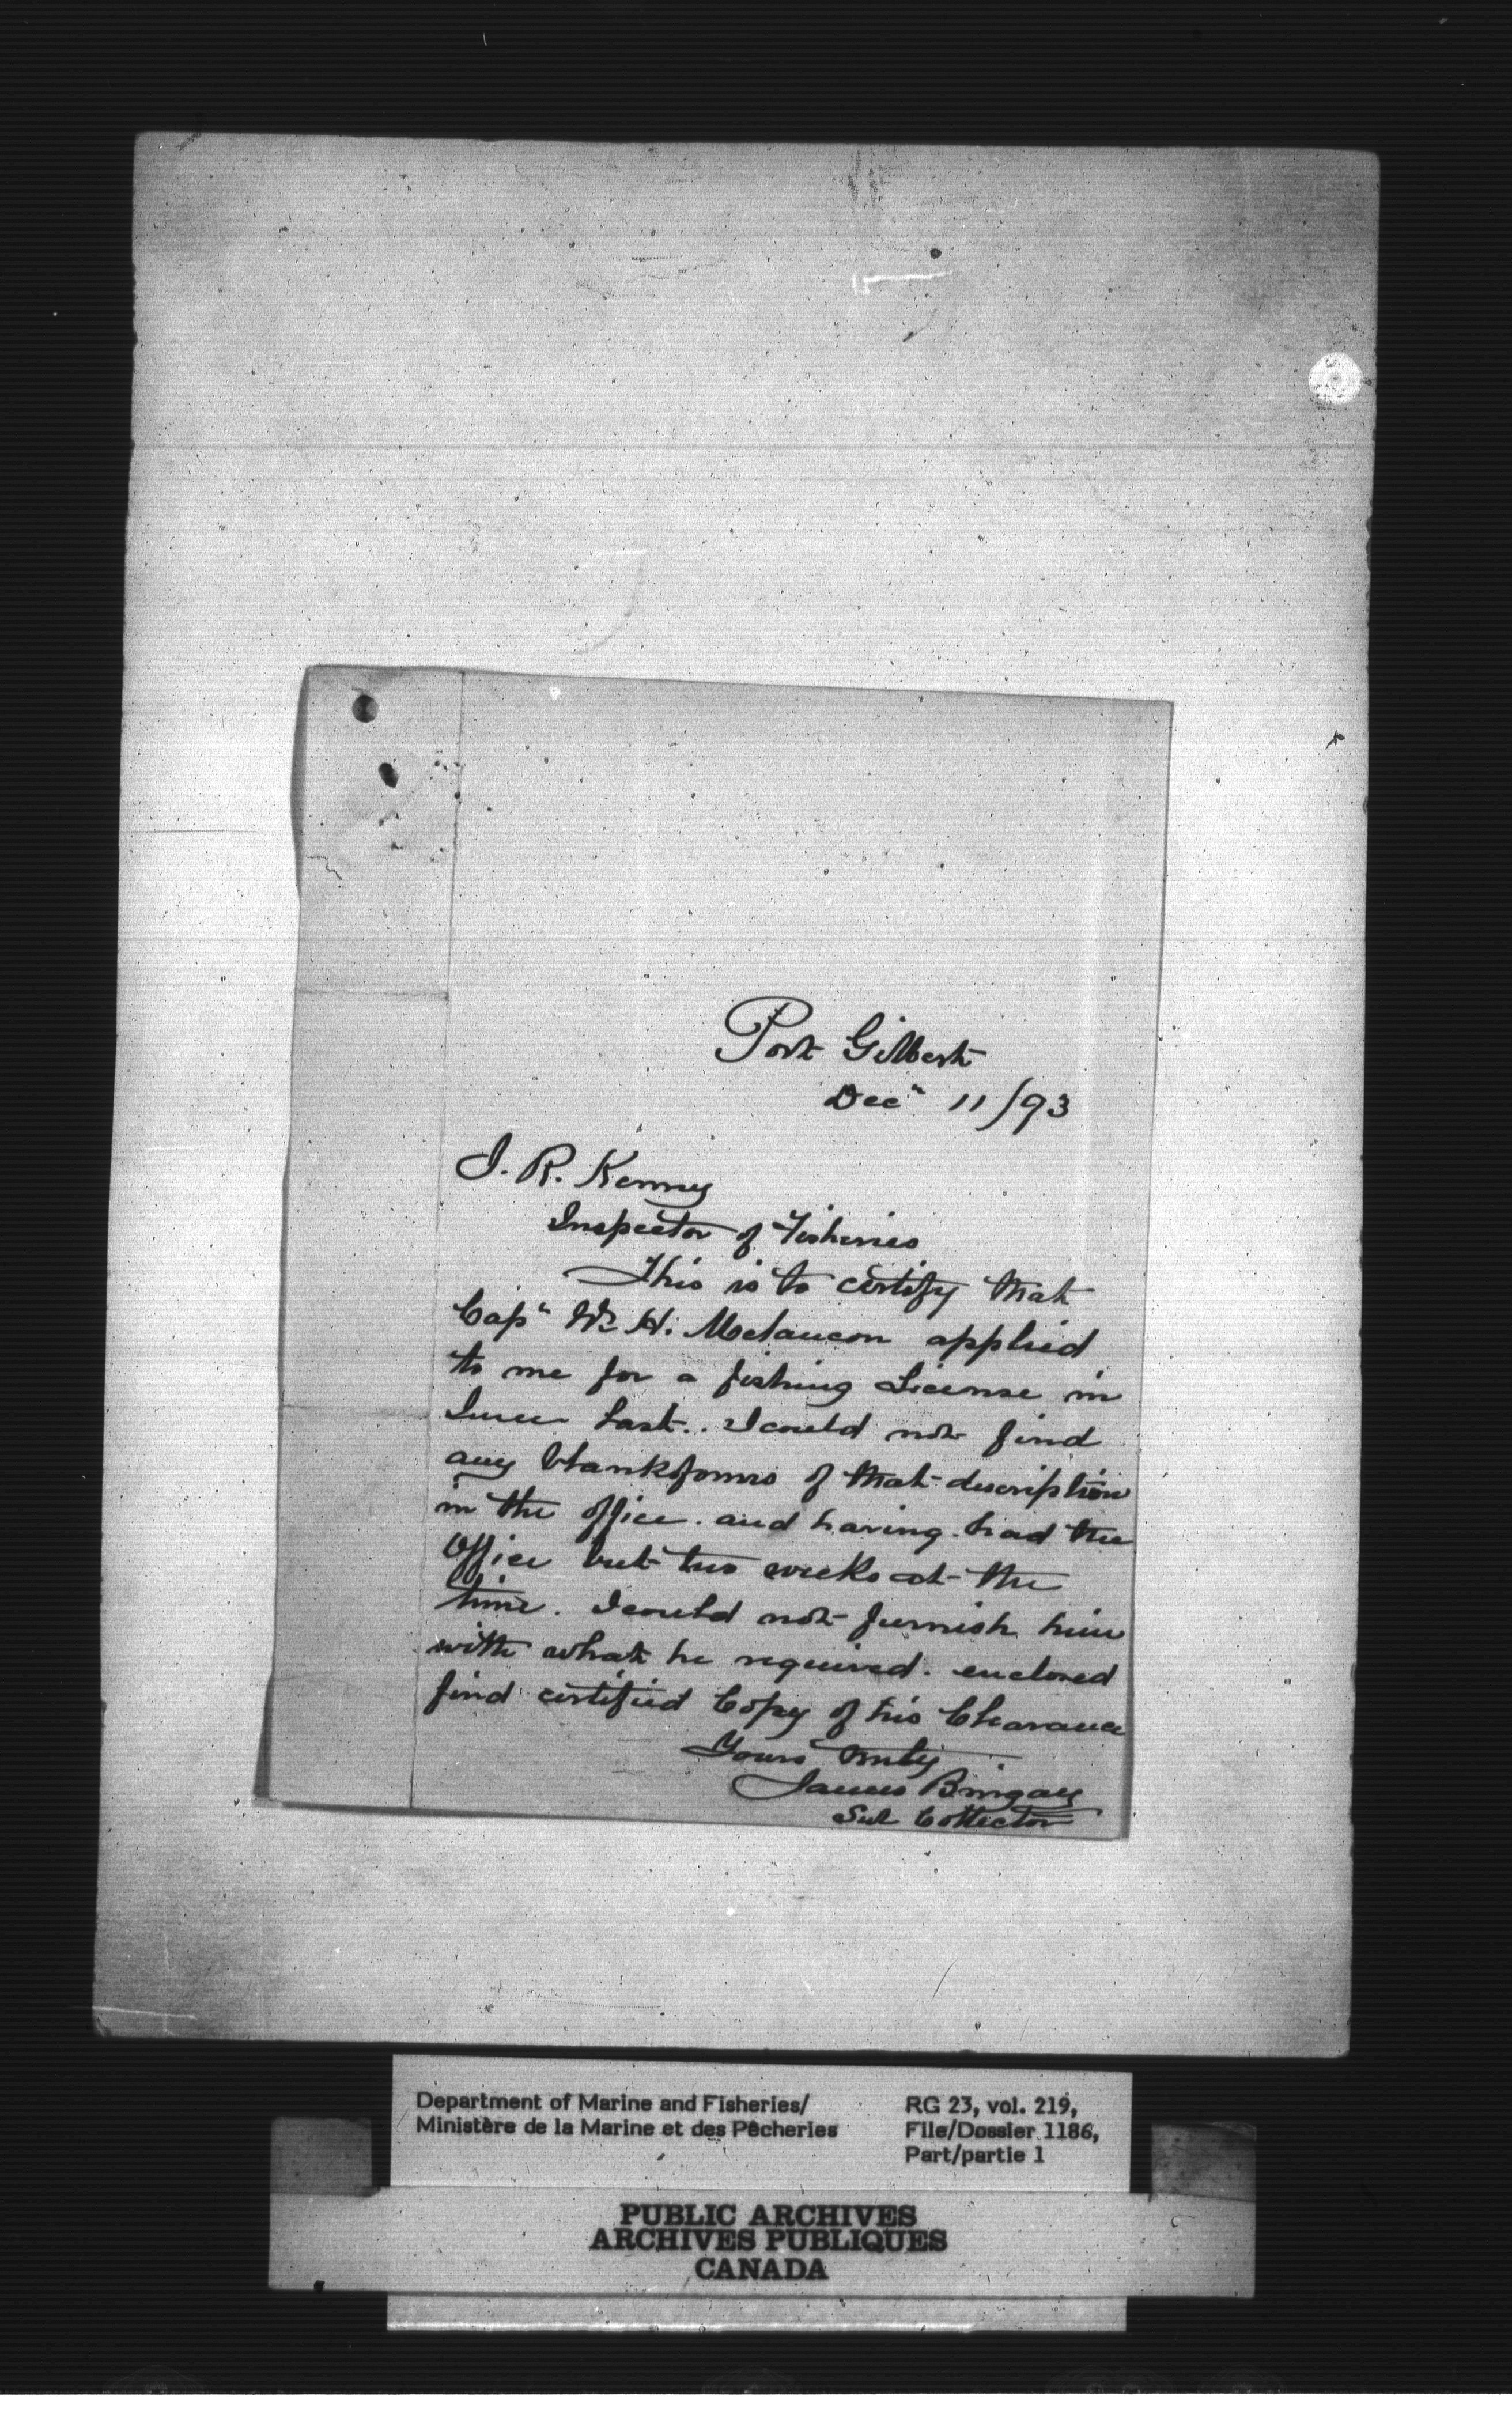 Port Gilbert
Decr 11/93
J. R. Kenney
Inspector of Fisheries
This is to certify that
Capt Wm H. Melancon applied
to me for a fishing License in
June last.. I could not find
any blank forms of that description
in the office. and having had the
Office but two weeks at the
time. I could not furnish him
with what he required. enclosed
find certified Copy of his Clearance
Yours truly
James Bingay
Sub Collector
Department of Marine and Fisheries/
Ministère de la Marine et des Pêcheries
RG 23, vol. 219,
File/Dossier 1186,
Part/partie 1
PUBLIC ARCHIVES
ARCHIVES PUBLIQUES
CANADA